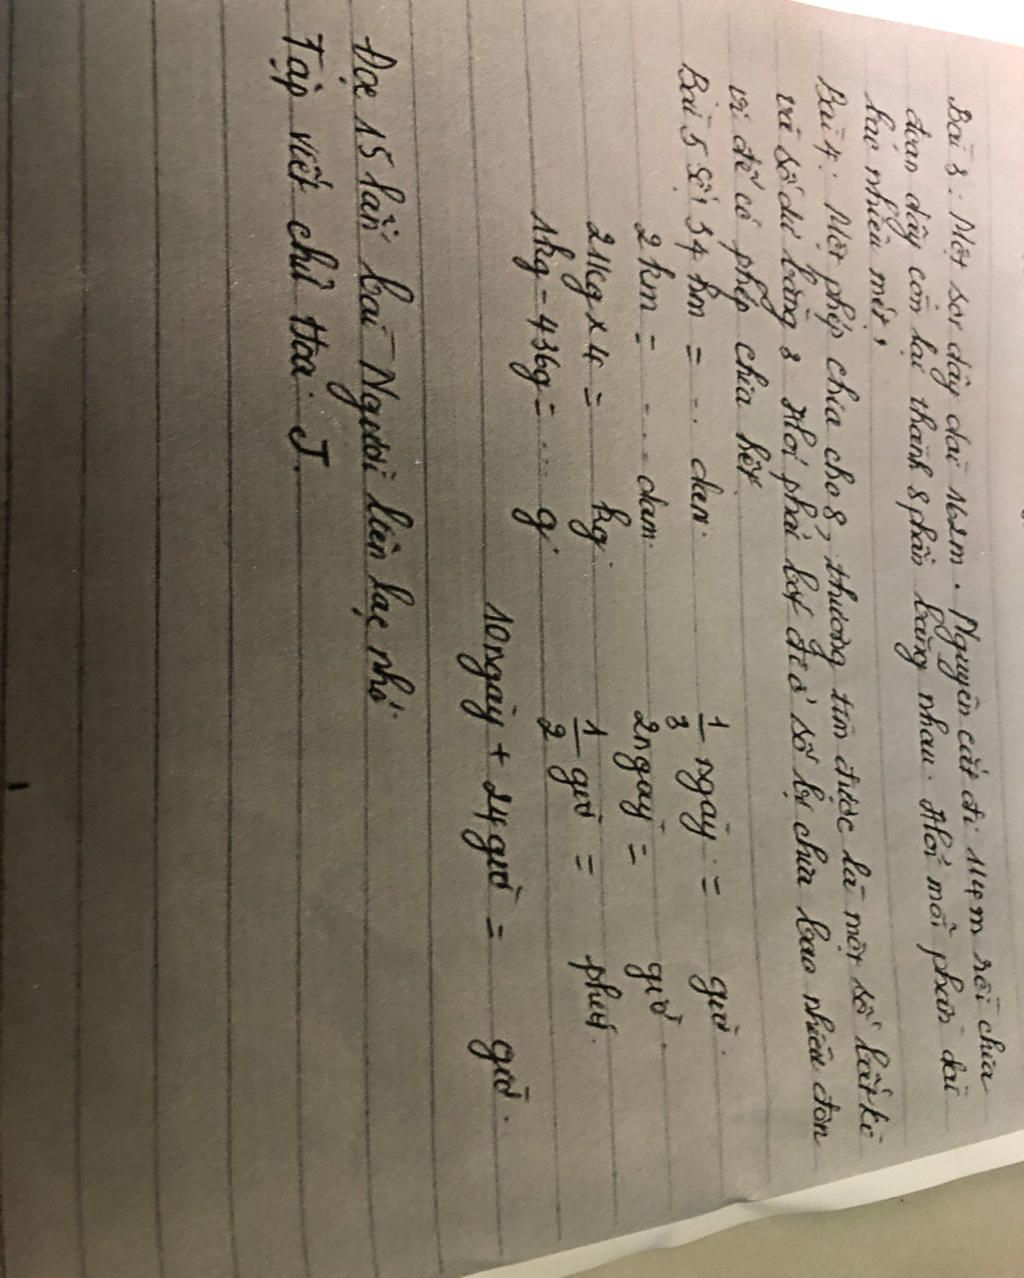 Bài 3: Một sợi dây dài 162m. Nguyên cắt đi 114m rồi chia
đoạn dây còn lại thành 8 phần bằng nhau. Hỏi mỗi phần dài
bao nhiêu mét,
Bài 4: Một phép chia cho 8, thương tìm được là một số bất kì
và số dư bằng 3 Hỏi phải bớt đi ở số bị chia bao nhiêu đơn
vị để có phép chia hết.
Bài 5 Số, 34 hm = ... dam. 1/3 ngày = giờ.
2 km = ... dam. 2 ngày = giờ.
21kg x 4 = kg. 1/2 giờ = phút.
1kg - 436g = ... g.
10 ngày + 24 giờ = giờ.
Đọc 15 lần bài Người liên lạc nhỏ.
Tập viết chữ Hoa J.